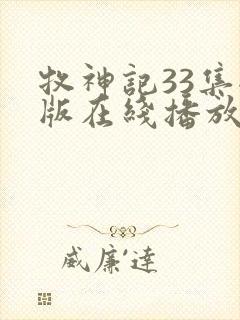 牧神記33集
版在綫播放
威廉·達